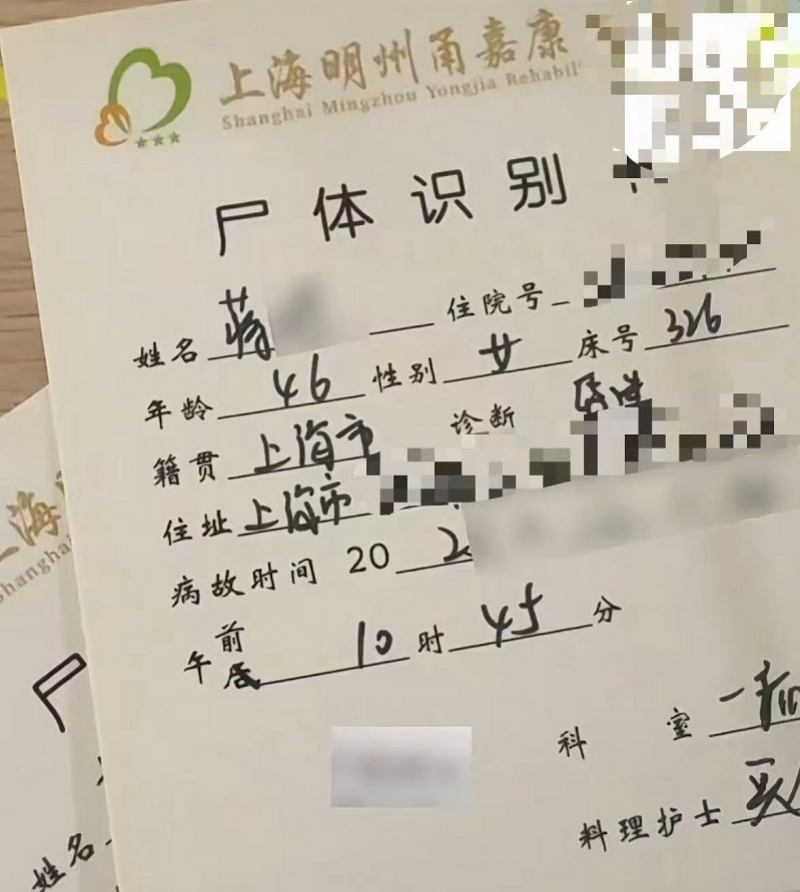 上海明州甬嘉康
Shanghai Mingzhou Yongjia Rehabil
尸体识别
姓名 蒋 住院号
年龄 46 性别 女 床号 326
籍贯 上海市 诊断
住址 上海市
病故时间 20 2
午 前 10 时 45 分
后
科室 一
料理护士
上海
Shanghai
尸
姓名